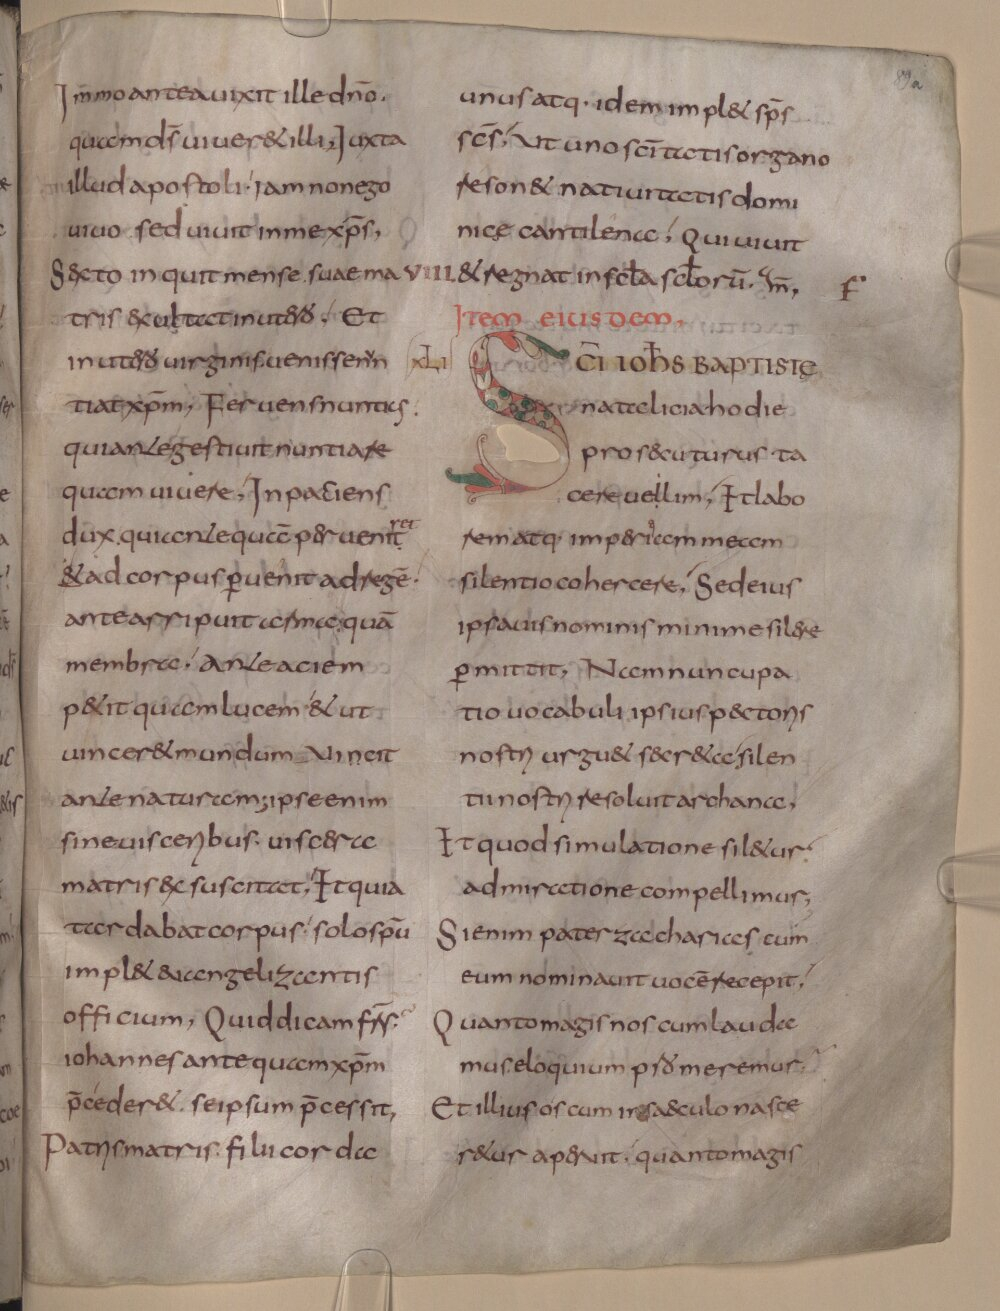 89a
Im̄mo antea uixit ille dn̄o.
quam dſ̄ uiueret illi; Iuxta
illud apostoli. iam non ego
uiuo sed uiuit in me xp̄s,
Sexto inquit mense suae ma
tris exultat in utero. Et
in utero uirginis uenisse nun
tiat xp̄m, Feruens nuntius.
qui ante gestiuit nuntiare
quam uiuere, In patiens
dux. qui ante quā peruenirret
& ad corpus ꝑuenit ad regē.
ante arripuit arma quā
membra. Ante aciem
petit quam lucem & ut
uinceret mundum Vincit
ante naturam; ipse enim
sine uisceribus. uiscera
matris excuscitat, Et quia
tardabat corpus. solo sp̄u
implet euangelizantis
officium, Quid dicam frs̄.
iohannes ante quam xp̄m
p̄cederet. se ipsum p̄cessit,
Patris matris. filii corda
unus atq. idem implet sp̄s
sc̄s, Vt uno sc̄itatis organo
resonet natiuitatis domi
nicę cantilena, Qui uiuit
VIII. & regnat in scła scłorū. am̄,
F
Item eiusdem,
XLI Sc̄i ioħs baptistę
natalicia hodie
prosecuturus. ta
cere uellim, Et labo
rem atq. imperiam meam
silentio cohercere, Sed eius
ipsa uis nominis minime silere
ꝑmittit, Nam nuncupa
tio uocabuli ipsius pectoris
nostri urguet secreta, silen
tii nostri resoluit archana,
Et quod simulatione siletur
admiratione compellimus,
Si enim pater zacharias cum
eum nominauit uocē recepit,
Quanto magis nos cum lauda
mus eloquium psor meremur.
Et illius os cum in saeculo nasce
retur aperuit. quanto magis